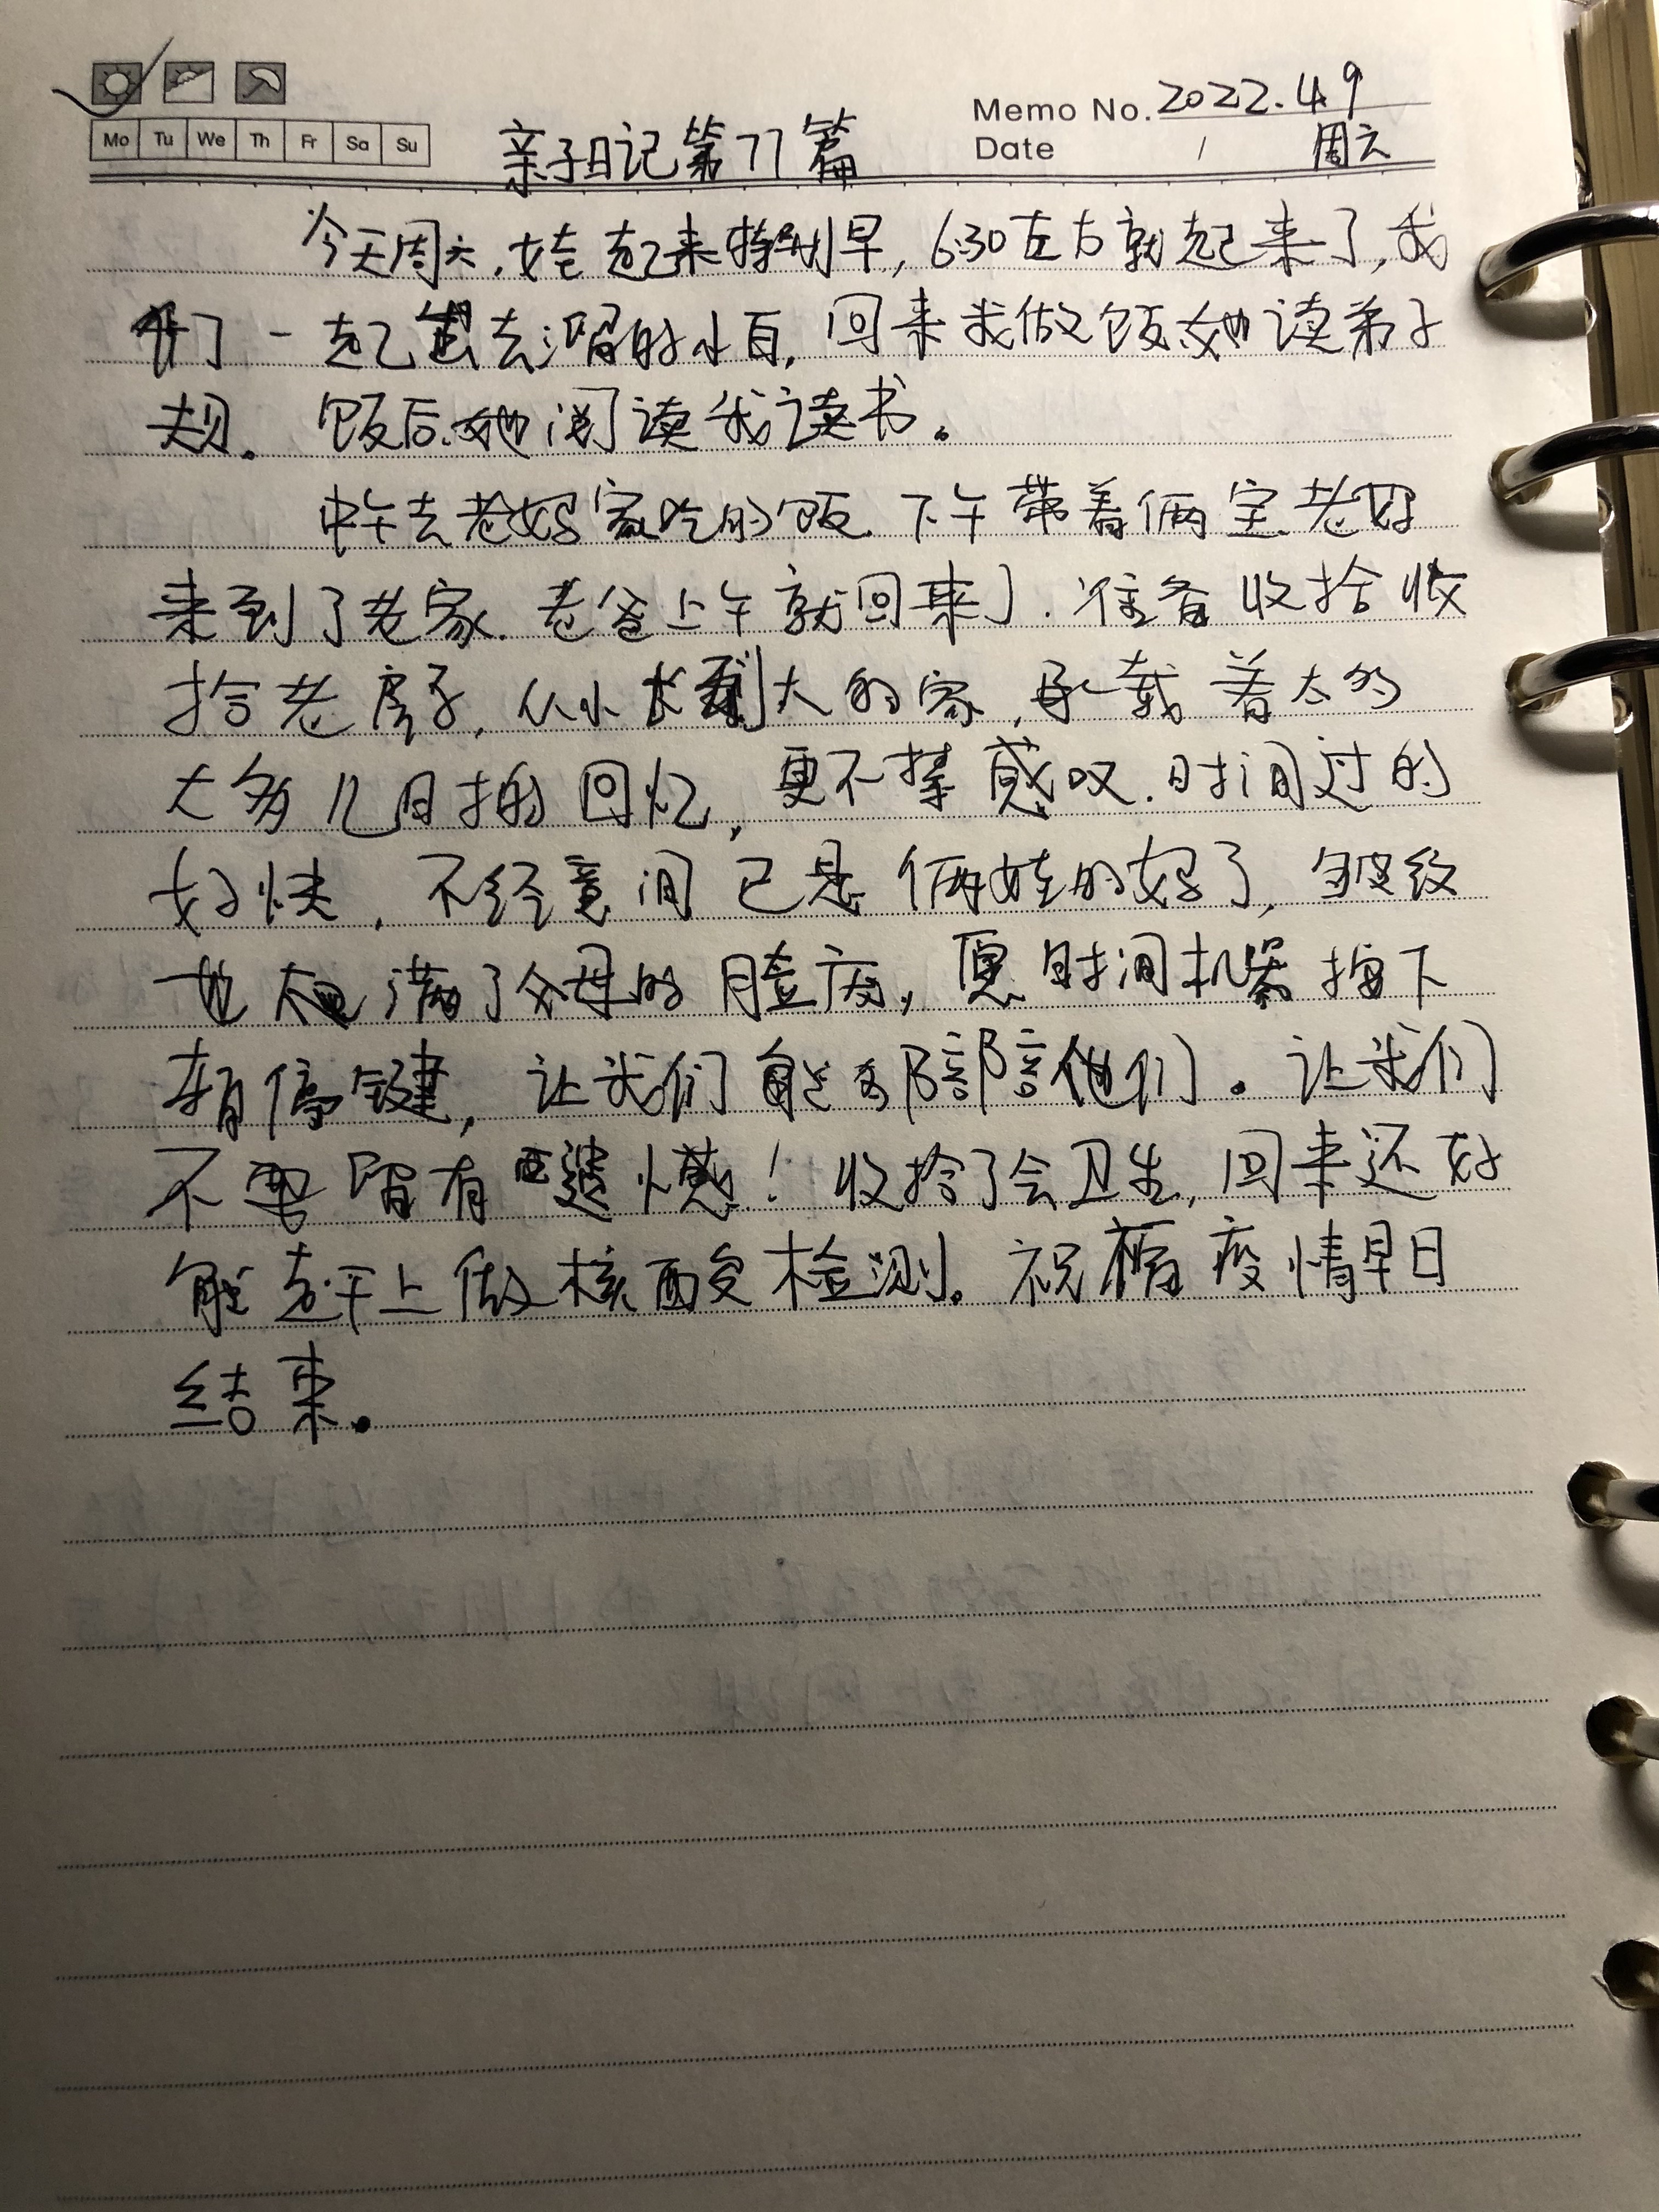 Memo No. 2022.4.9
Mo Tu We Th Fr Sa Su
亲子日记第77篇
Date / 周六
今天周六,娃起来特别早,6:30左右就起来了,我
们一起出去溜的小白,回来我做饭她读弟子
规。饭后她阅读我读书。
中午去老妈家吃的饭.下午带着俩宝.老妈
来到了老家.老爸上午就回来了.准备收拾收
拾老房子,从小长到大的家,承载着太多
太多儿时的回忆,更不禁感叹.时间过的
好快,不经意间已是俩娃的妈了,皱纹
也布满了父母的脸庞,愿时间机器按下
暂停键,让我们能多陪陪他们。让我们
不要留有遗憾!收拾了会卫生,回来还好
能赶上做核酸检测。祝福疫情早日
结束。